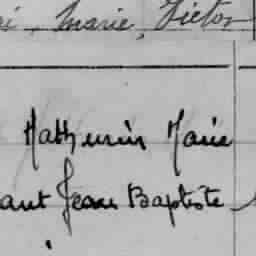 Marie, Victor
Mathurin Marie
aut Jean Baptiste